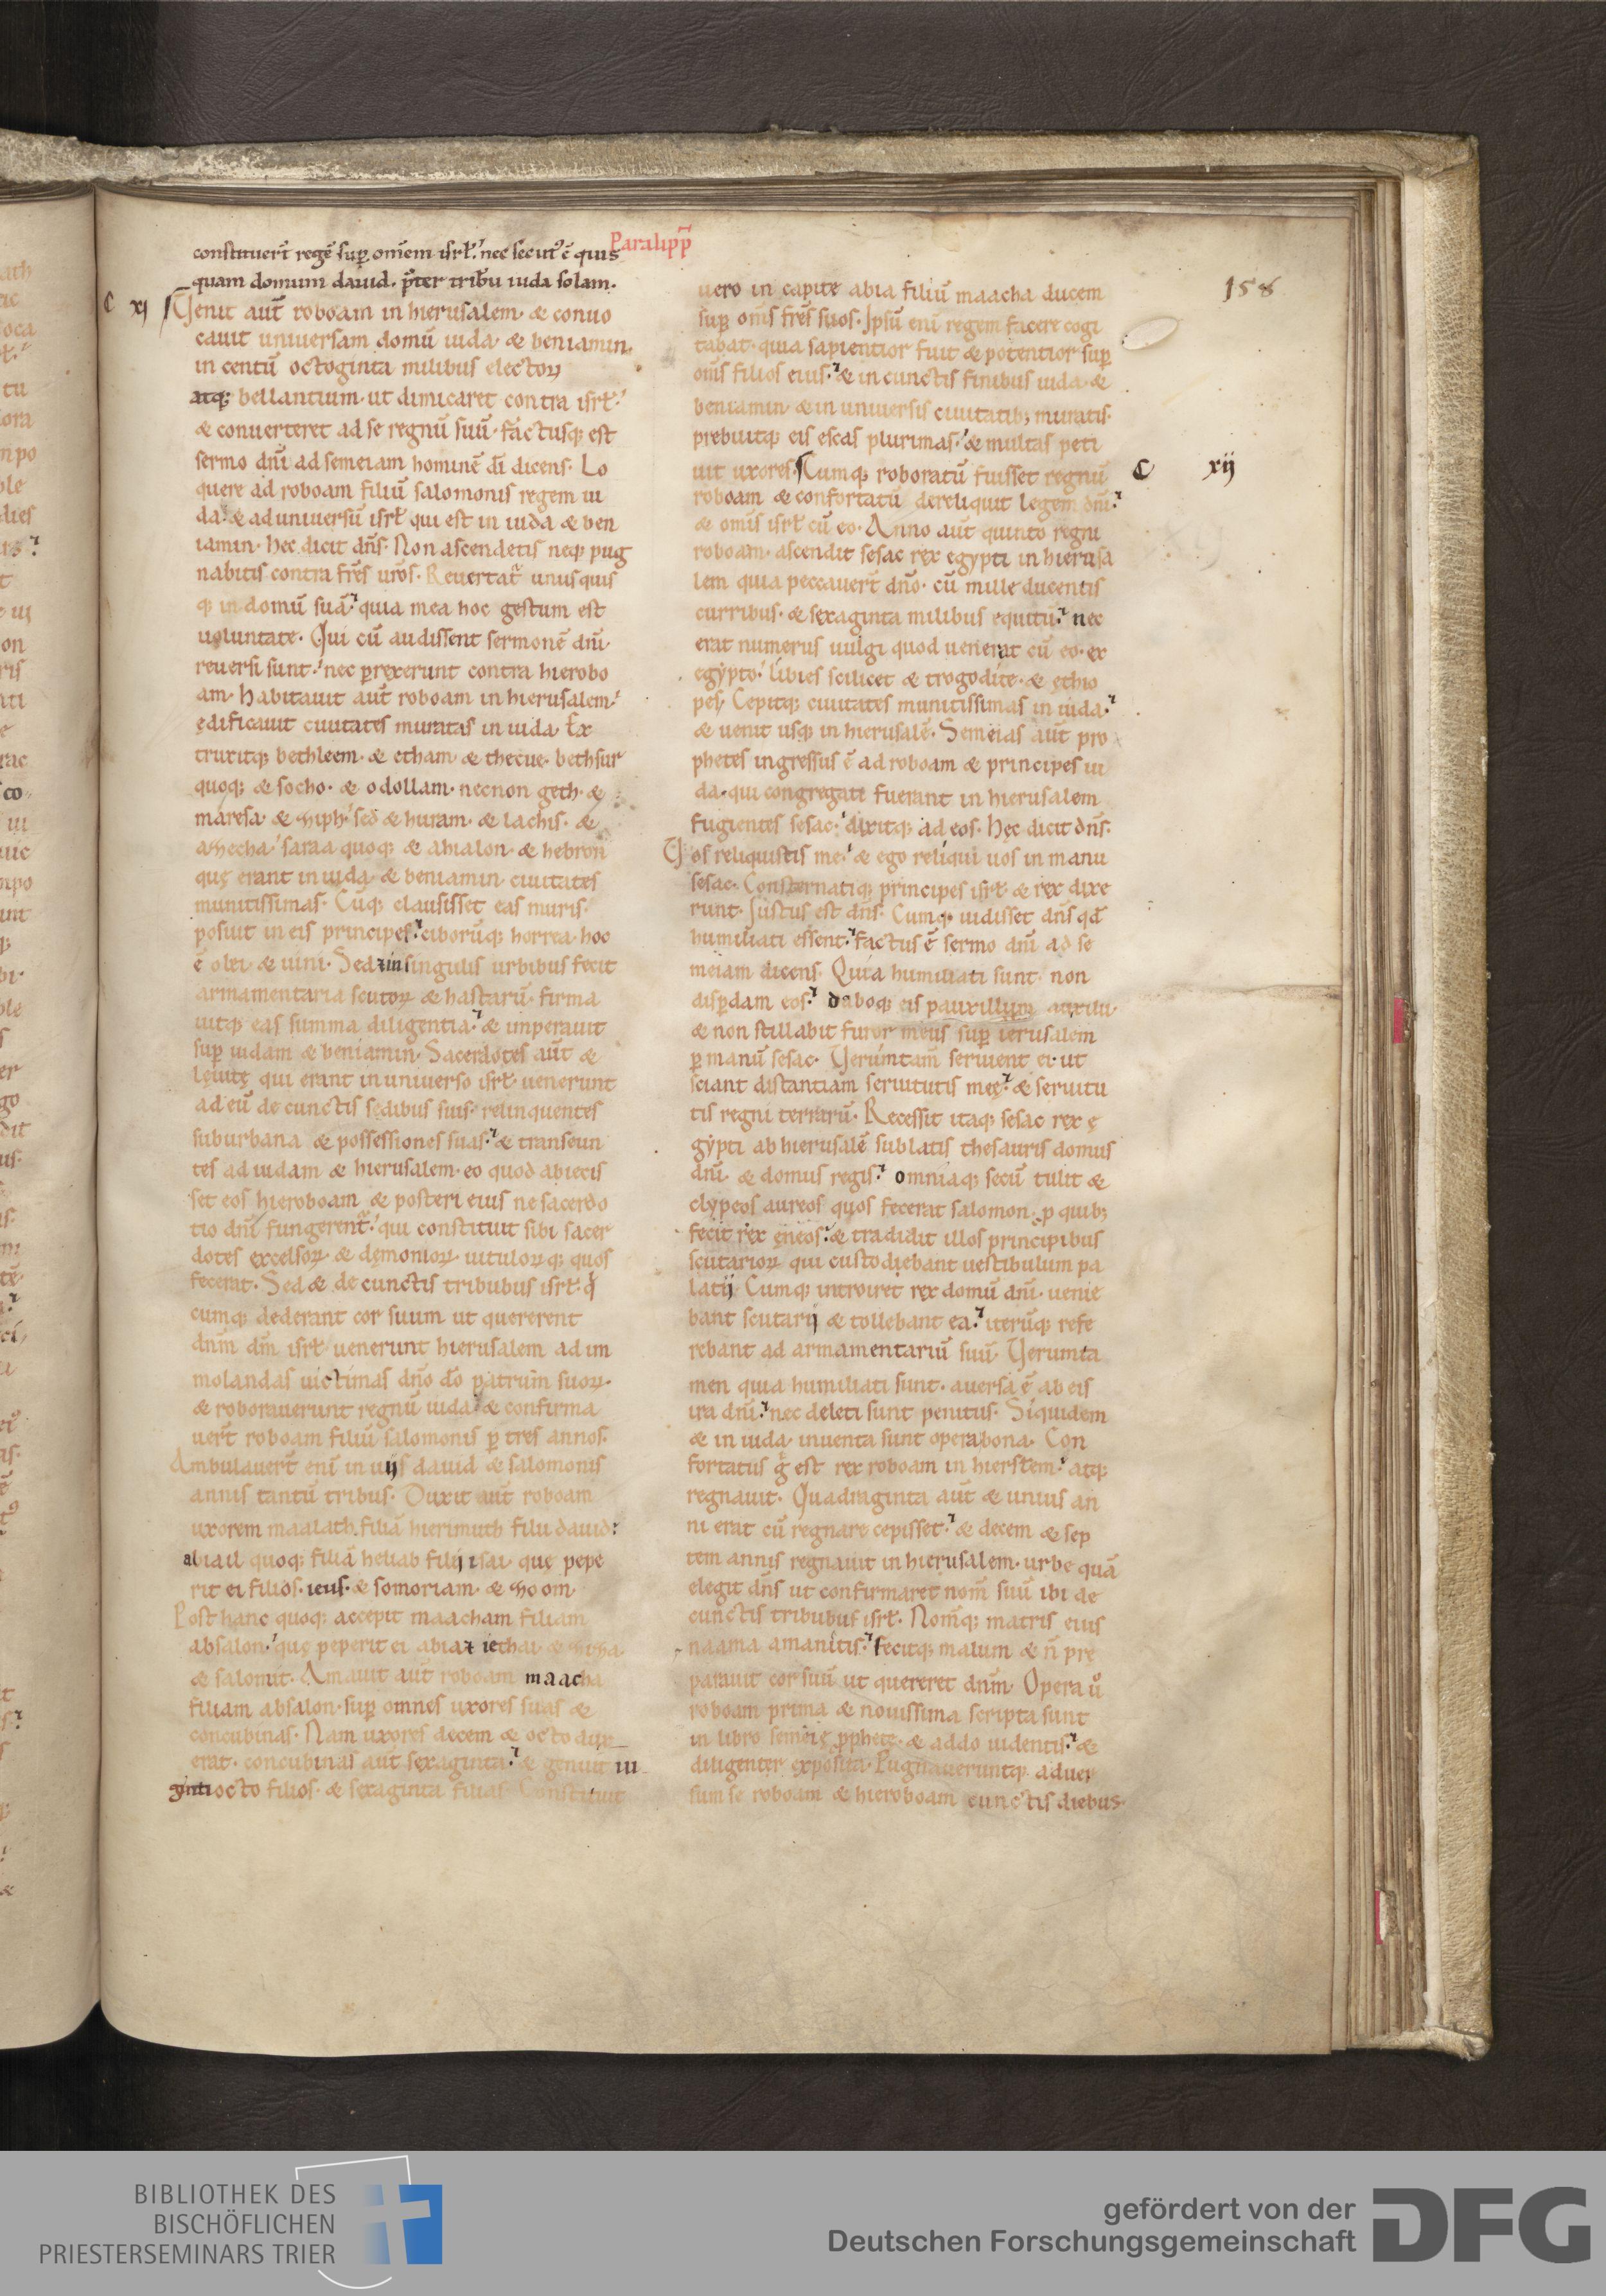 Paralipp̄
158
constituer̄t regē sup omēm isrl̄. nec secut᷒ ē quis
quam domum dauid. p̄ter tribū iuda solam.
C xj Uenit aūt roboam in hierusalem. & conuo
cauit uniuersam domū iuda. & beniamin.
in centū octoginta milibus electoꝝ
atq; bellantium. ut dimicaret contra isrl̄.
& conuerteret ad se regnū suū. factusq; est
sermo dn̄i ad semeiam hominē dī dicens. Lo
quere ad roboam filiū salomonis regem iu
da. & ad uniuersū isrl̄ qui est in iuda & ben
iamin. hec dicit dn̄s. Non ascendetis neq; pug
nabitis contra fr̄es ur̄os. Reuertat᷑ unusquis
q; in domū suā. quia mea hoc gestum est
uoluntate. Qui cū audissent sermonē dn̄i.
reuersi sunt. nec prexerunt contra hierobo
am. habitauit aūt roboam in hierusalem.
ędificauit ciuitates muratas in iuda. Ex
truxitq; bethleem. & etham. & thecue. bethsur
quoq; & socho. & odollam. necnon geth. &
maresa. & ziph. sed & huram. & lachis. &
azecha. saraa quoq; & ahialon. & hebron
quę erant in iuda. & beniamin. ciuitates
munitissimas. Cūq; clausisset eas muris.
posuit in eis principes. ciborūq; horrea. hoc
ē olei. & uini. Sed ⁊ in singulis urbibus fecit
armamentaria scutoꝝ & hastarū. firma
uitq; eas summa diligentia. & imperauit
sup iudam & beniamin. Sacerdotes aūt &
leuitę qui erant in uniuerso isrl̄. uenerunt
ad eū de cunctis sedibus suis. relinquentes
suburbana & possessiones suas. & transeun
tes ad iudam & hierusalem. eo quod abiecis
set eos hieroboam & posteri eius ne sacerdo
tio dn̄i fungerent᷑. qui constituit sibi sacer
dotes excelsoꝝ. & dęmonioꝝ. uituloꝝq; quos
fecerat. Sed & de cunctis tribubus isrl̄. q̄
cumq; dederant cor suum ut quererent
dn̄m dm̄ isrl̄ uenerunt hierusalem ad im
molandas uictimas dn̄o dō patrum suoꝝ.
& roborauerunt regnū iuda. & confirma
uer̄t roboam filiū salomonis p tres annos.
Ambulauer̄t enī in uijs dauid & salomonis
annis tantū tribus. Duxit aūt roboam
uxorem maalath. filiā hierimuth filii dauid.
abiail quoq; filiā heliab filij isai. quę pepe
rit ei filios. ieus. & somoriam. & zoom.
Post hanc quoq; accepit maacham filiam
absalon. quę peperit ei abia ⁊ iethai. & ziza.
& salomit. Amauit aūt roboam maacha
filiam absalon. sup omnes uxores suas &
concubinas. Nam uxores decem & octo dux
erat. concubinas aūt sexaginta. & genuit ui
ginti octo filios. & sexaginta filias. Constituit
uero in capite abia filiū maacha ducem
sup om̄s fr̄es suos. Ipsū enī regem facere cogi
tabat. quia sapientior fuit & potentior sup
om̄s filios eius. & in cunctis finibus iuda. &
beniamin. & in uniuersis ciuitatib; muratis.
prebuitq; eis escas plurimas. & multas peti
uit uxores. Cumq; roboratū fuisset regnū C xij
roboam & confortatū dereliquit legem dn̄i.
& omis isrl̄ cū eo. Anno aūt quinto regni
roboam. ascendit sesac rex egypti in hierusa
lem quia peccauer̄t dn̄o. cū mille ducentis
curribus. & sexaginta milibus equitū. nec
erat numerus uulgi quod uenerat cū eo. ex
egypto. libies scilicet & trogodite. & ethio
pes. Cepitq; ciuitates munitissimas in iuda.
& uenit usq; in hierusalē. Semeias aūt pro
phetes ingressus ē ad roboam & principes iu
da. qui congregati fuerant in hierusalem
fugientes sesac. dixitq; ad eos. Hęc dicit dn̄s.
Uos reliquistis me. & ego reliqui uos in manu
sesac. Consternatiq; principes isrl̄ & rex dixe
runt. Iustus est dn̄s. Cumq; uidisset dn̄s qd̄
humiliati essent. factus ē sermo dn̄i ad se
meiam dicens. Quia humiliati sunt. non
dispdam eos. daboq; eis pauxillum auxilii.
& non stillabit furor meus sup ierusalem
p manū sesac. Uerumtam̄ seruient ei. ut
sciant distantiam seruitutis meę. & seruitu
tis regni terrarū. Recessit itaq; sesac rex ę
gypti ab hierusalē sublatis thesauris domus
dn̄i. & domus regis. omniaq; secū tulit &
clypeos aureos quos fecerat salomon. p quib;
fecit rex ęneos. & tradidit illos principibus
scutarioꝝ qui custodiebant uestibulum pa
latij. Cumq; introiret rex domū dn̄i. uenie
bant scutarij & tollebant ea. iterūq; refe
rebant ad armamentariū suū. Uerumta
men quia humiliati sunt. auersa ē ab eis
ira dn̄i. nec deleti sunt penitus. Siquidem
& in iuda. inuenta sunt opera bona. Con
fortatus g̊ est rex roboam in hierlem. atq;
regnauit. Quadraginta aūt & unius an
ni erat cū regnare cepisset. & decem & sep
tem annis regnauit in hierusalem. urbe quā
elegit dn̄s ut confirmaret nom̄ suū ibi de
cunctis tribubus isrl̄. Nom̄q; matris eius
naama amanitis. fecitq; malum & n̄ prę
parauit cor suū ut quereret dn̄m. Opera ů
roboam prima & nouissima scripta sunt
in libro semeię pphete. & addo uidentis. &
diligenter exposita. Pugnaueruntq; aduer
sum se roboam & hieroboam cunctis diebus.
BIBLIOTHEK DES
BISCHÖFLICHEN
PRIESTERSEMINARS TRIER
gefördert von der
Deutschen Forschungsgemeinschaft
DFG